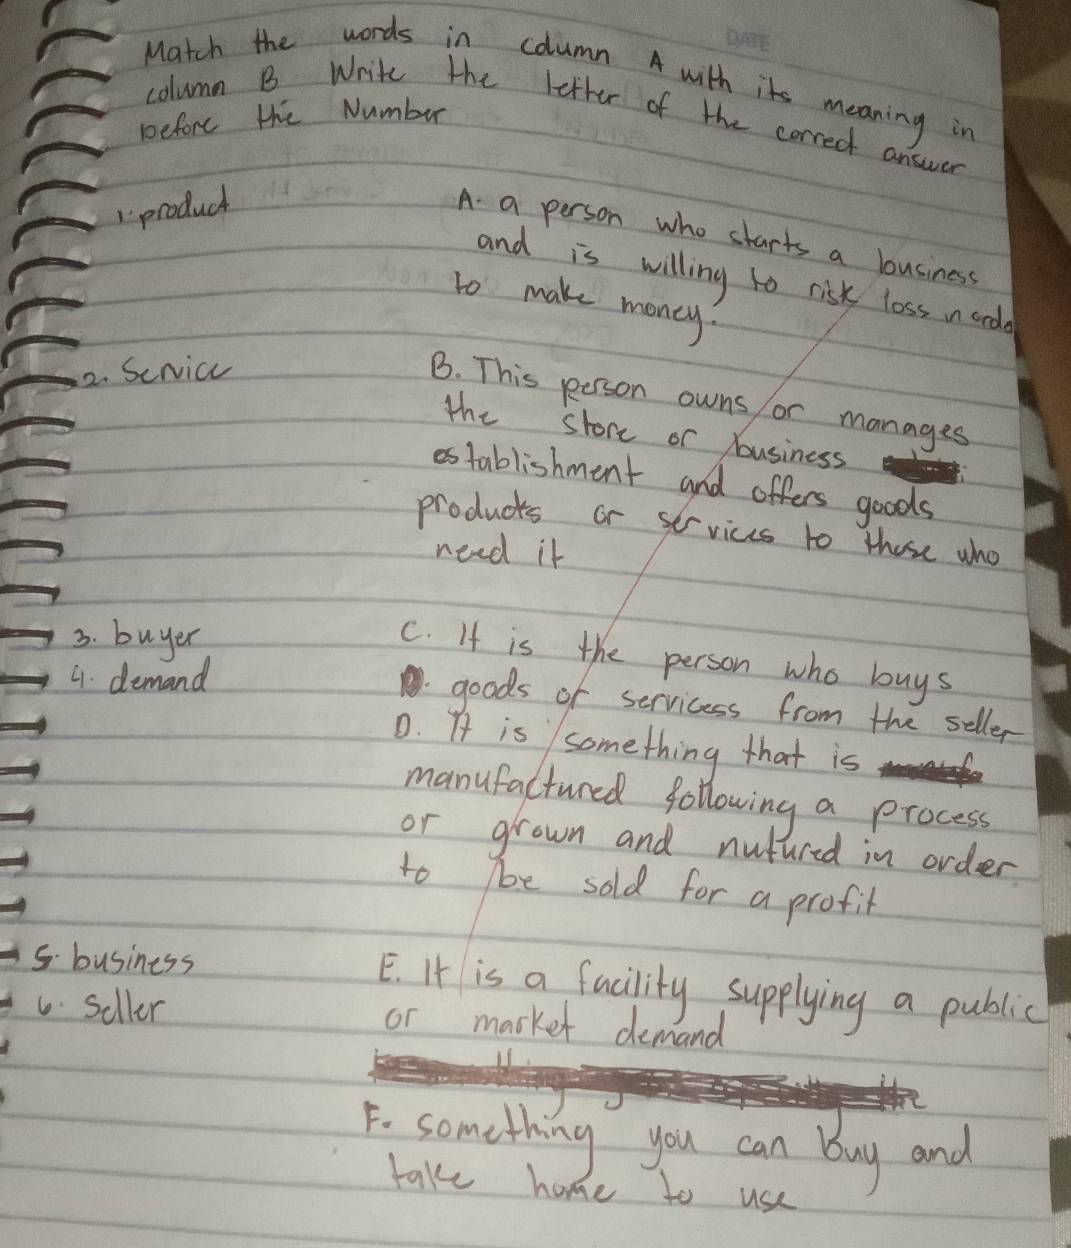 DATE
Match the words in column A with its meaning in
column B Write the letter of the correct answer
before the Number
1. product
A. a person who starts a business
and is willing to risk loss in orde
to make money.
2. Service
B. This person owns or manages
the store or business
establishment and offers goods
products or services to those who
need it
3. buyer
C. It is the person who buys
4. demand
goods or servicess from the seller
D. It is something that is
manufactured following a process
or grown and nutured in order
to be sold for a profit
5. business
E. It is a facility supplying a public
6. Seller
or market demand
F. something you can buy and
take home to use